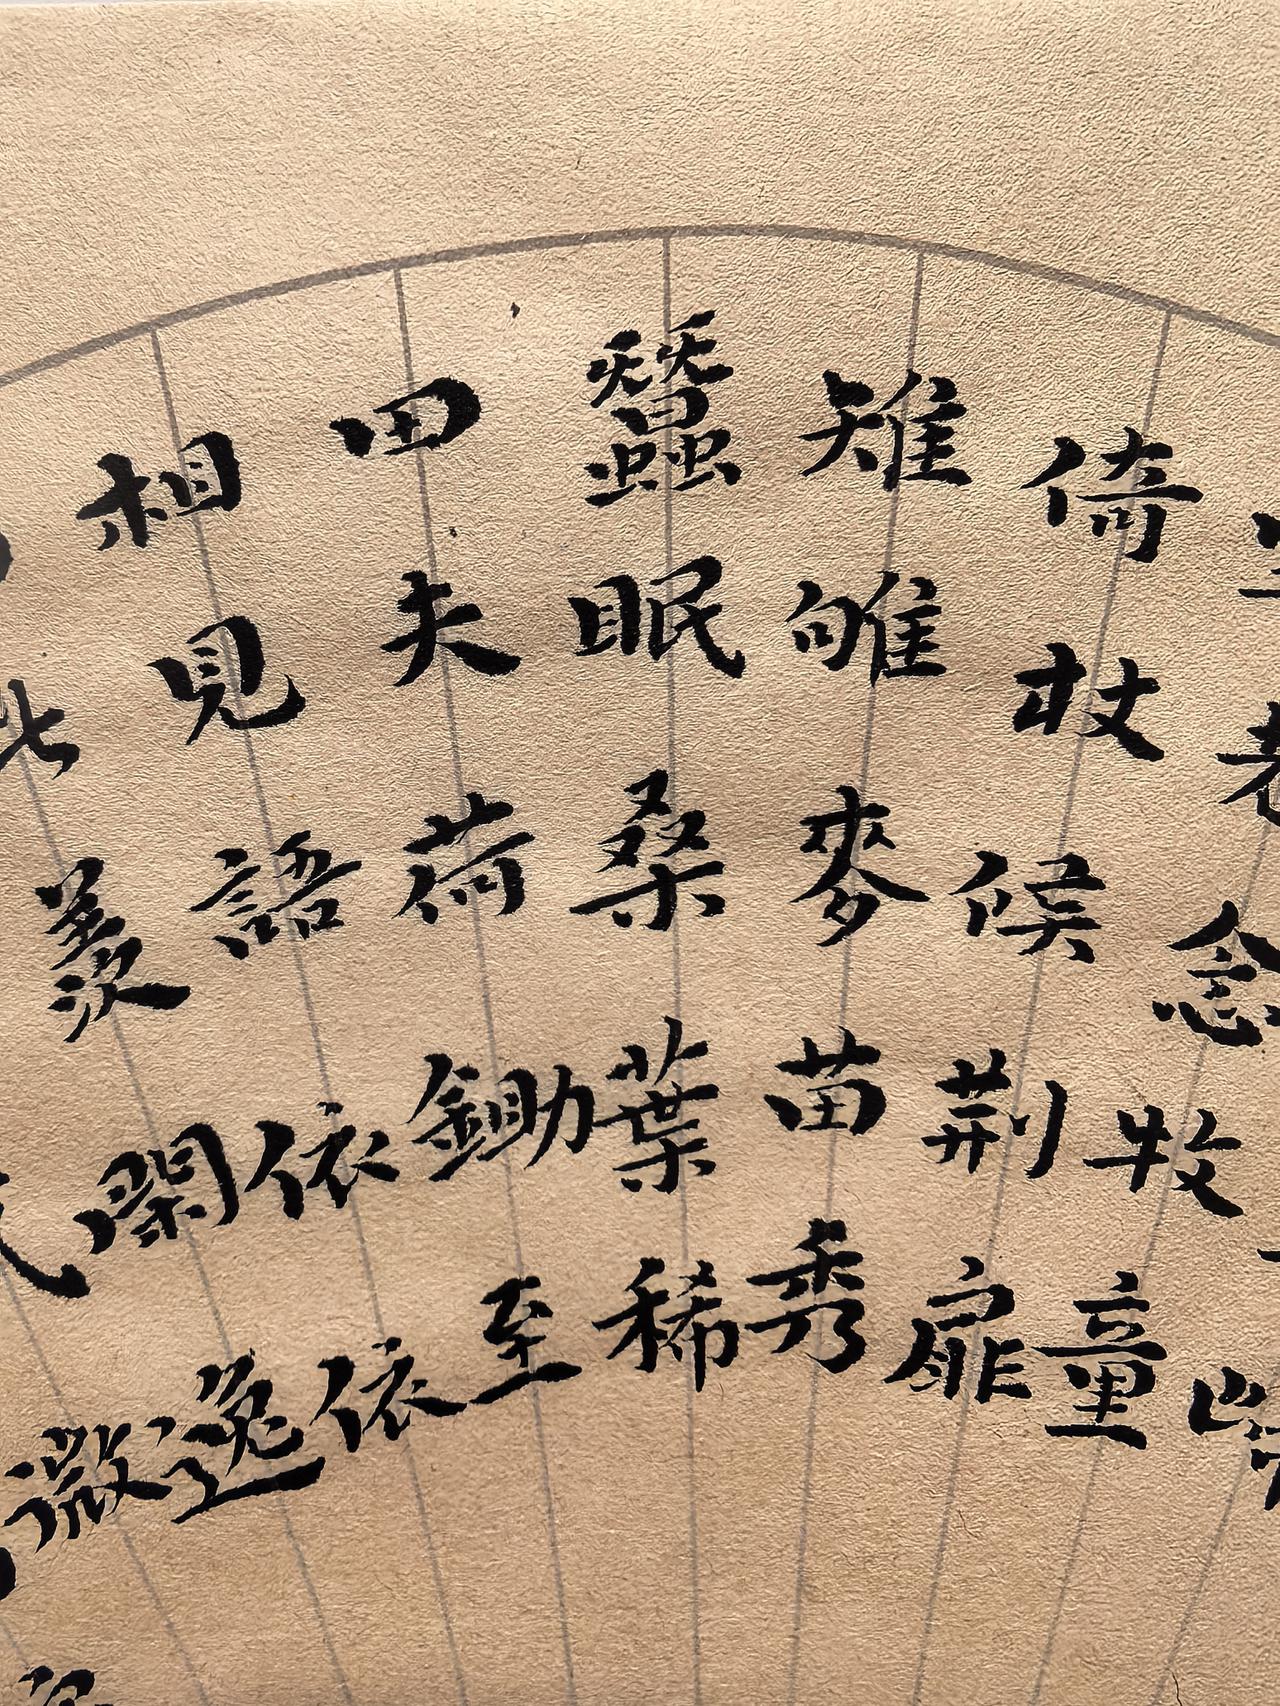 老念牧童
倚杖候荊扉
雉雊麥苗秀
蠶眠桑葉稀
田夫荷鋤至
相見語依依
此羨閑逸
微